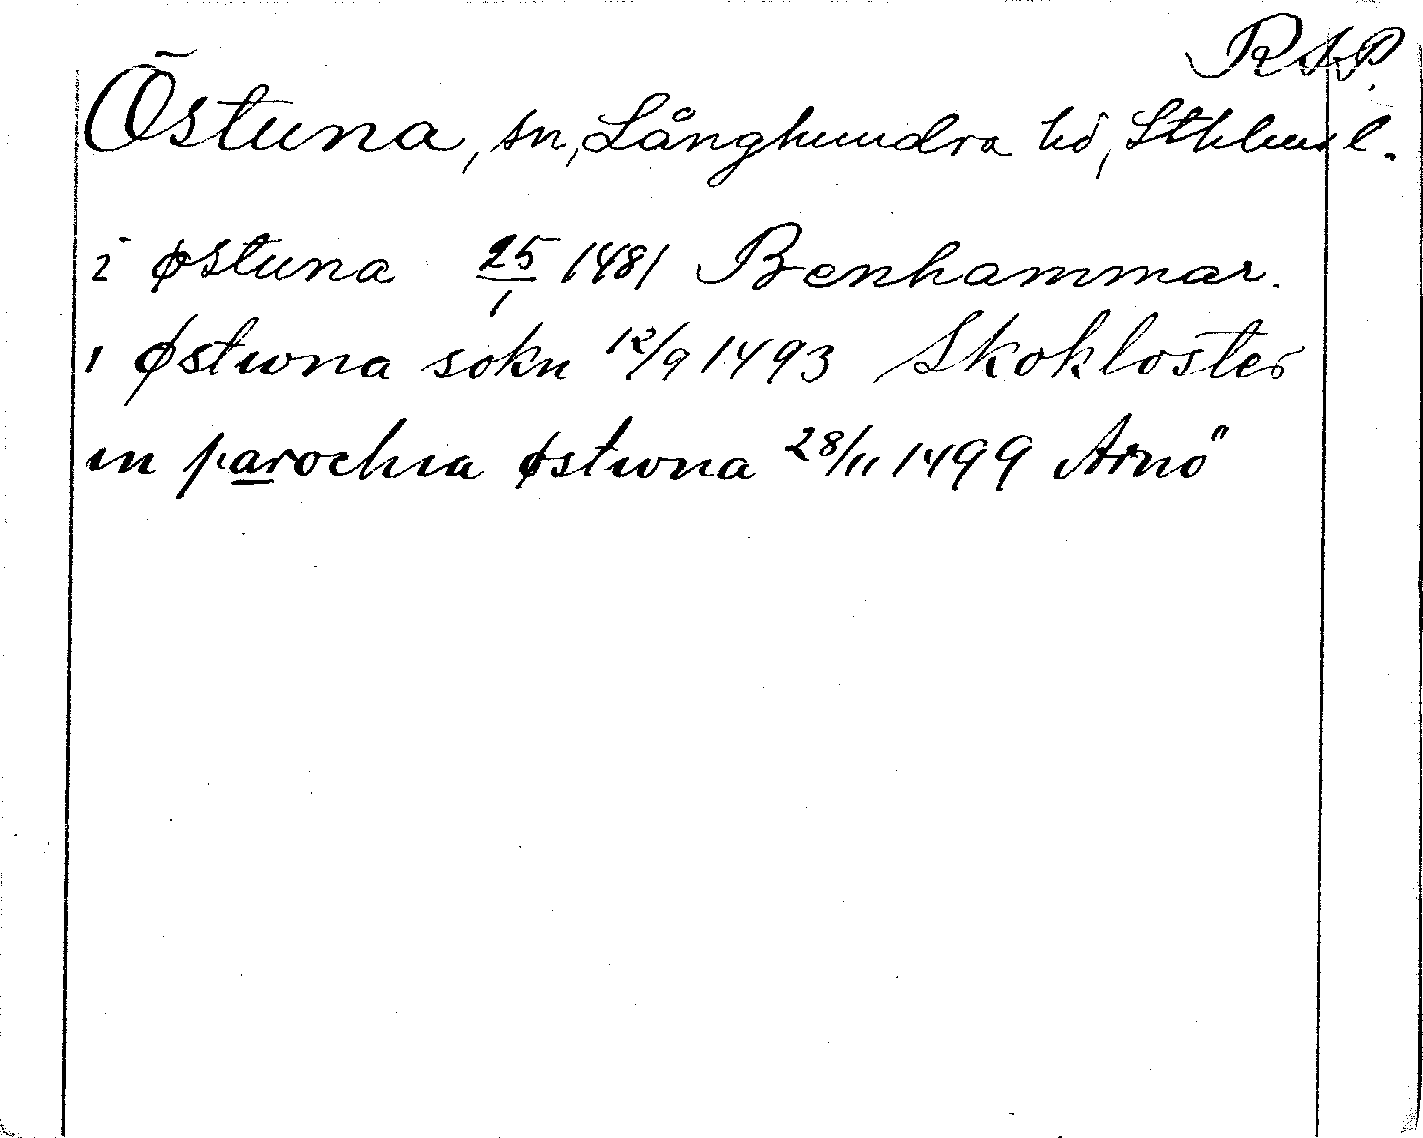 RAP.
Östuna, sn, Långhundra hd, Sthlms l.
i østuna 25/1 1481 Benhammar.
i østwna sokn 12/9 1493 Skokloster
in parochia østwna 28/11 1499 Arnö